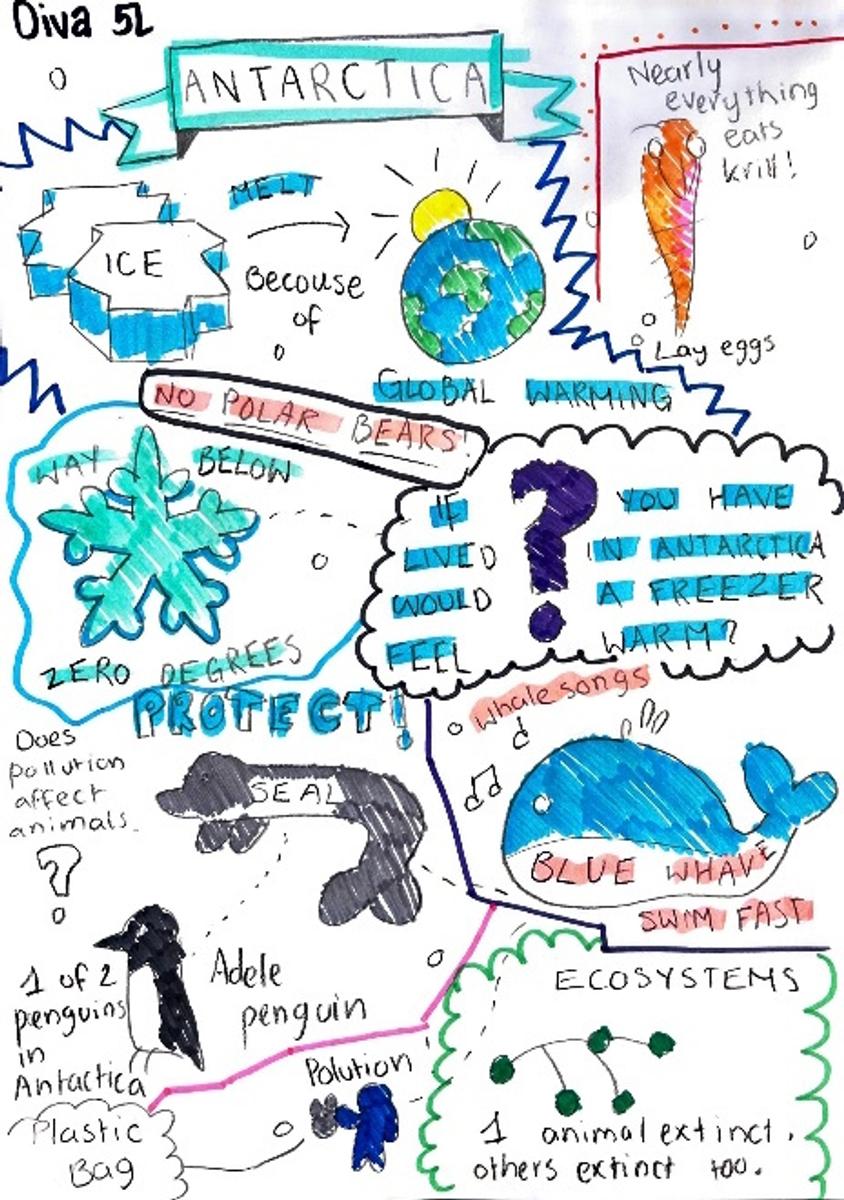 Diva 5L
ANTARCTICA
Nearly
everything
eats
krill!
Lay eggs
MELT
ICE
Becouse
of
GLOBAL WARMING
NO POLAR BEARS
WAY BELOW
ZERO DEGREES
IF YOU HAVE
LIVED IN ANTARCTICA
WOULD A FREEZER
FEEL WARM?
?
PROTECT!
Does
pollution
affect
animals.
?
SEAL
whale songs
BLUE WHAVE
SWIM FAST
1 of 2
penguins
in
Antactica
Adele
penguin
Polution
Plastic
Bag
ECOSYSTEMS
1 animal extinct.
others extinct too.